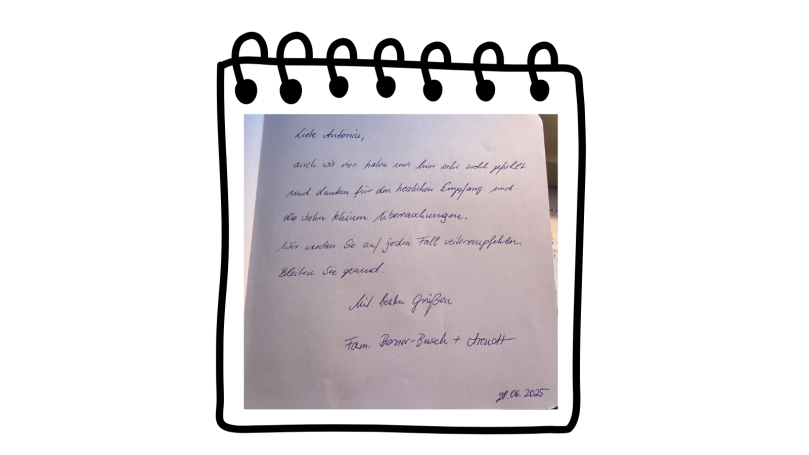 Liebe Antonia,
auch wir vier haben uns hier sehr wohl gefühlt
und danken für den herzlichen Empfang und
die vielen kleinen Überraschungen.
Wir werden Sie auf jeden Fall weiterempfehlen.
Bleiben Sie gesund.
Mit besten Grüßen
Fam. Berner-Busch +
.06.2025